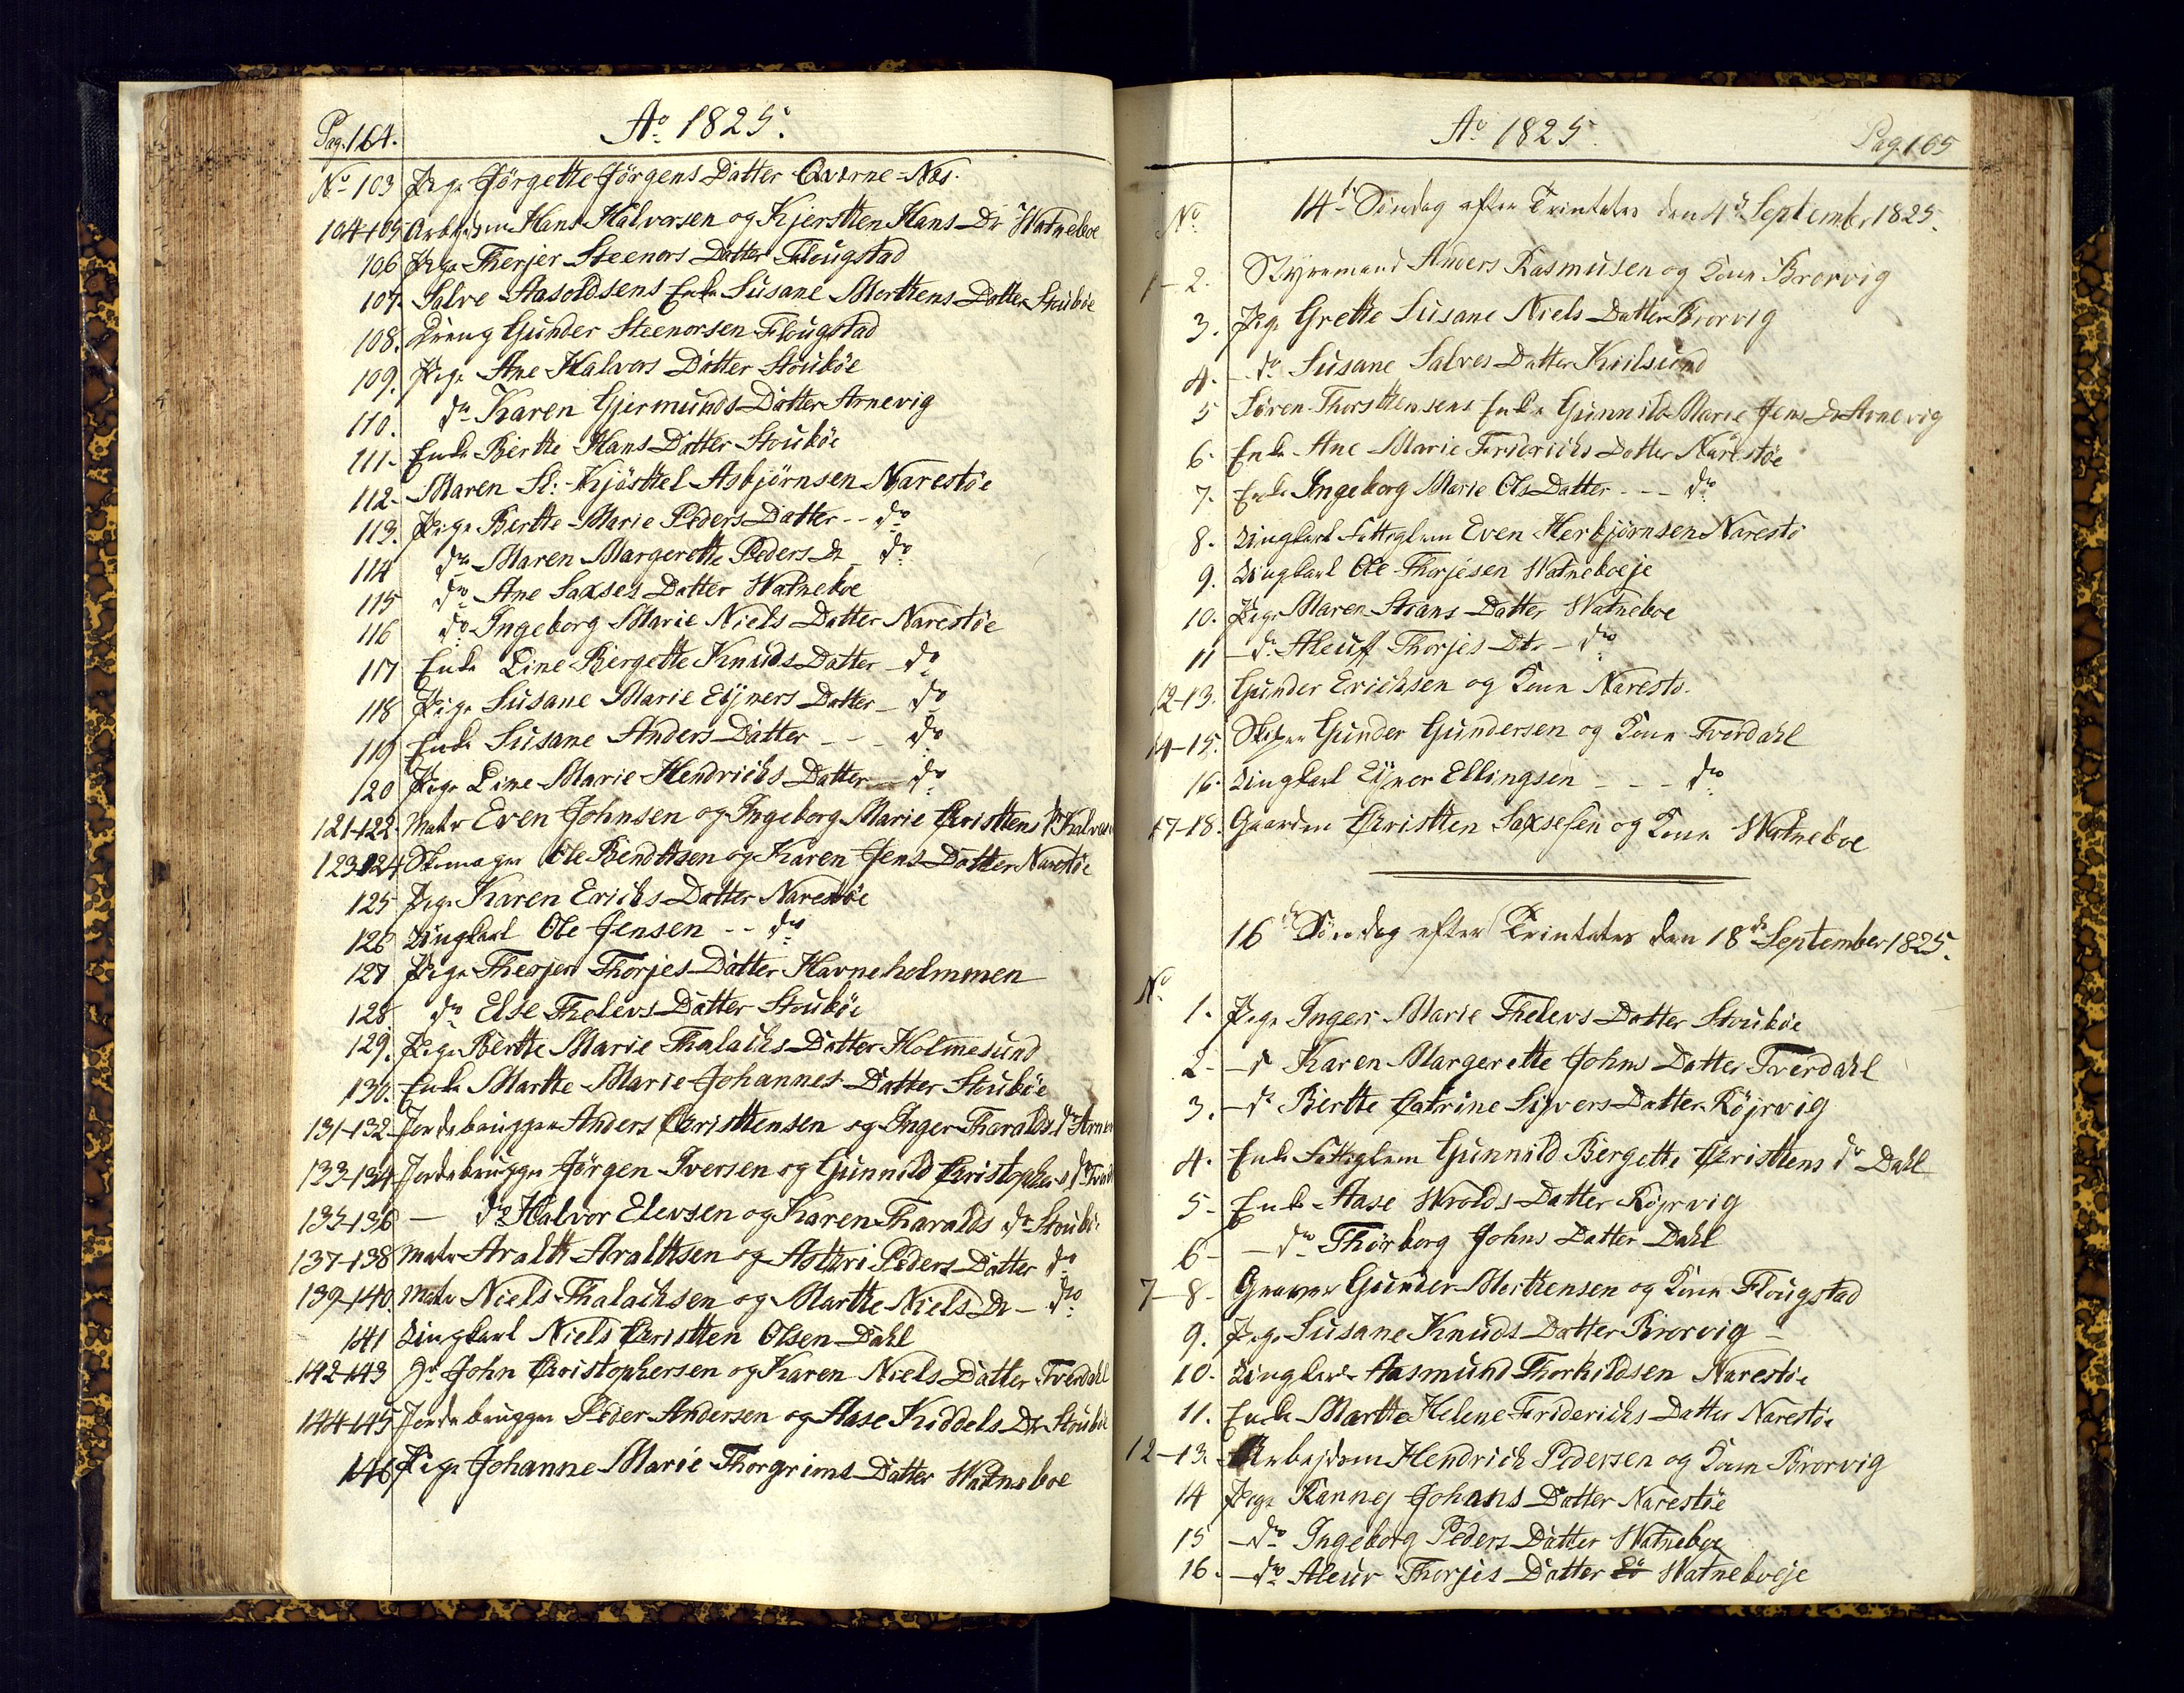 Pag. 164.
Ao 1825.
No 103 Pige Jörgette Jörgens Datter Qverne-Næs.
104-105 Arbejdsm Hans Halvorsen og Kjerstten Hans-Dr Watneboe
106 Pige Therjer Steenors Datter Flougstad
107 Salve Aasoldsens Enke Susane Morttens Datter Stoubøe
108. Dreng Gunder Steenorsen Flougstad
109. Pige Ane Halvors Datter Stoubøe
110. do Karen Gjermunds Datter Arnevig
111. Enke Bertte Hans Datter Stoubøe
112. Maren Sl: Kjösttel Asbjørnsen Narestøe
113. Pige Bertte Marie Peders Datter -- do
114 do Maren Margerette Peders Dr do
115 do Ane Saxses Datter Watneboe
116 do Ingeborg Marie Niels Datter Narestøe
117 Enke Line Bergette Knuds Datter - do
118 Pige Susane Marie Eijners Datter - do
119 Enke Susane Anders Datter - - - do
120 Pige Line Marie Hendrichs Datter - do
121-122. Matr Even Johnsen og Ingeborg Marie Christtens dr
123-124 Skomager Ole Bendttsen og Karen Jens Datter Narestøe
125 Pige Karen Erichs Datter Narestøe
126 Ungkarl Ole Jensen -- do
127 Pige Therjer Thorjes Datter Havneholmmen
128 do Else Thelevs Datter Stoubøe
129. Pige Bertte Marie Thalachs Datter Holmesund
130. Enke Martte Marie Johannes Datter Stoubøe
131-132 Jordebrugger Anders Christtensen og Inger Tharalds dr
133-134 Jordebrugger Jørgen Iversen og Gunnild Christophers dr
135-136 — do Halvor Elevsen og Karen Tharalds dr Stoubøe
137-138 Matr Araltt Aralttsen og Astri Peders Datter do
139-140. Matr Niels Thalachsen og Martte Niels Dr - do
141 Ungkarl Niels Christten Olsen Dahl
142-143 Gr John Christophersen og Karen Niels Datter Tverdahl
144-145 Jordebrugger Peder Andersen og Aase Kiddels Dr Stoubøe
146 Pige Johanne Marie Thorgrims Datter Watneboe
Ao 1825.
Pag 165
14de Söndag efter Trinitatis den 4de September 1825.
No
1-2. Styremand Anders Rasmusen og Kone Brorvig
3. Pige Grette Susane Niels Datter Brorvig
4. - do Susane Salves Datter Kiilsund
5 Søren Thorsttensens Enke Gunnild Marie Jens Dr Arnevig
6. Enke Ane Marie Friderichs Datter Narestøe
7. Enke Ingeborg Marie Ols Datter - - - do
8. Ungkarl Fattiglem Even Herbjørnsen Narestø
9. Ungkarl Ole Thorjesen Watneboeje
10. Pige Maren Stians Datter Watneboe
11 - do Aleuff Thorjes Dtr - do
12-13. Gunder Erichsen og Kone Narestø.
14-15. Skipper Gunder Gundersen og Kone Tverdahl
16. Ungkarl Eijner Ellingsen - - - do
17-18. Gaardm Christten Saxsesen og Kone Watneboe
16de Söndag efter Trinitatis den 18de September 1825.
No
1. Pige Inger Marie Thelevs Datter Stoubøe
2. - do Karen Margerette Johns Datter Tverdahl
3. - do Bertte Catrine Sijvers Datter Røjrvig
4. Enke Fattiglem Gunnild Bergette Christtens dr Dahl
5. Enke Aase Wrolds Datter Röjrvig
6 - - do Thörborg Johns Datter Dahl
7-8. Graver Gunder Morttensen og Kone Flougstad
9. Pige Susane Knuds Datter Brorvig
10. Ungkarl Aasmund Thorkildsen Narestøe
11. Enke Martte Helene Friderichs Datter Narestøe
12-13. Arbejdsm Hendrich Pedersen og Kone Brorvig
14 Pige Rannej Johans Datter Narestöe
15 - do Ingeborg Peders Datter Watneboe
16. - do Aleur Thorjes Datter Watneboeje